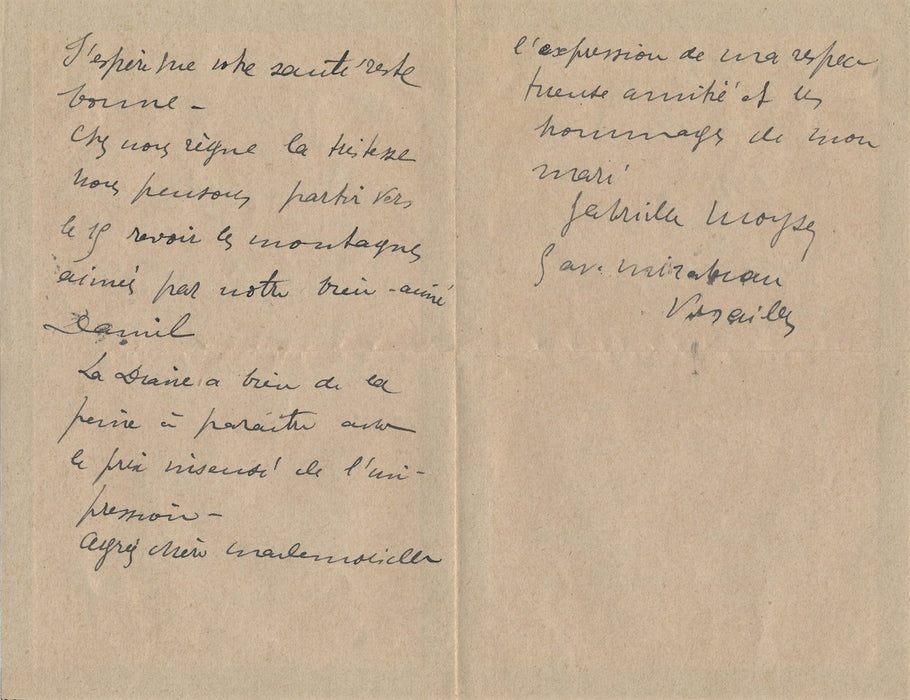 J'espère que votre santé reste
bonne -
Chez nous règne la tristesse
nous pensons partir vers
le 15 revoir les montagnes
aimées par notre bien-aimé
Daniel
La Diane a bien de la
peine à paraître avec
le prix insensé de l'im-
pression -
Agréez chère mademoiselle
l'expression de ma respec
tueuse amitié et les
hommages de mon
mari
Gabrielle Moyse
5 av. mirabeau
Versailles